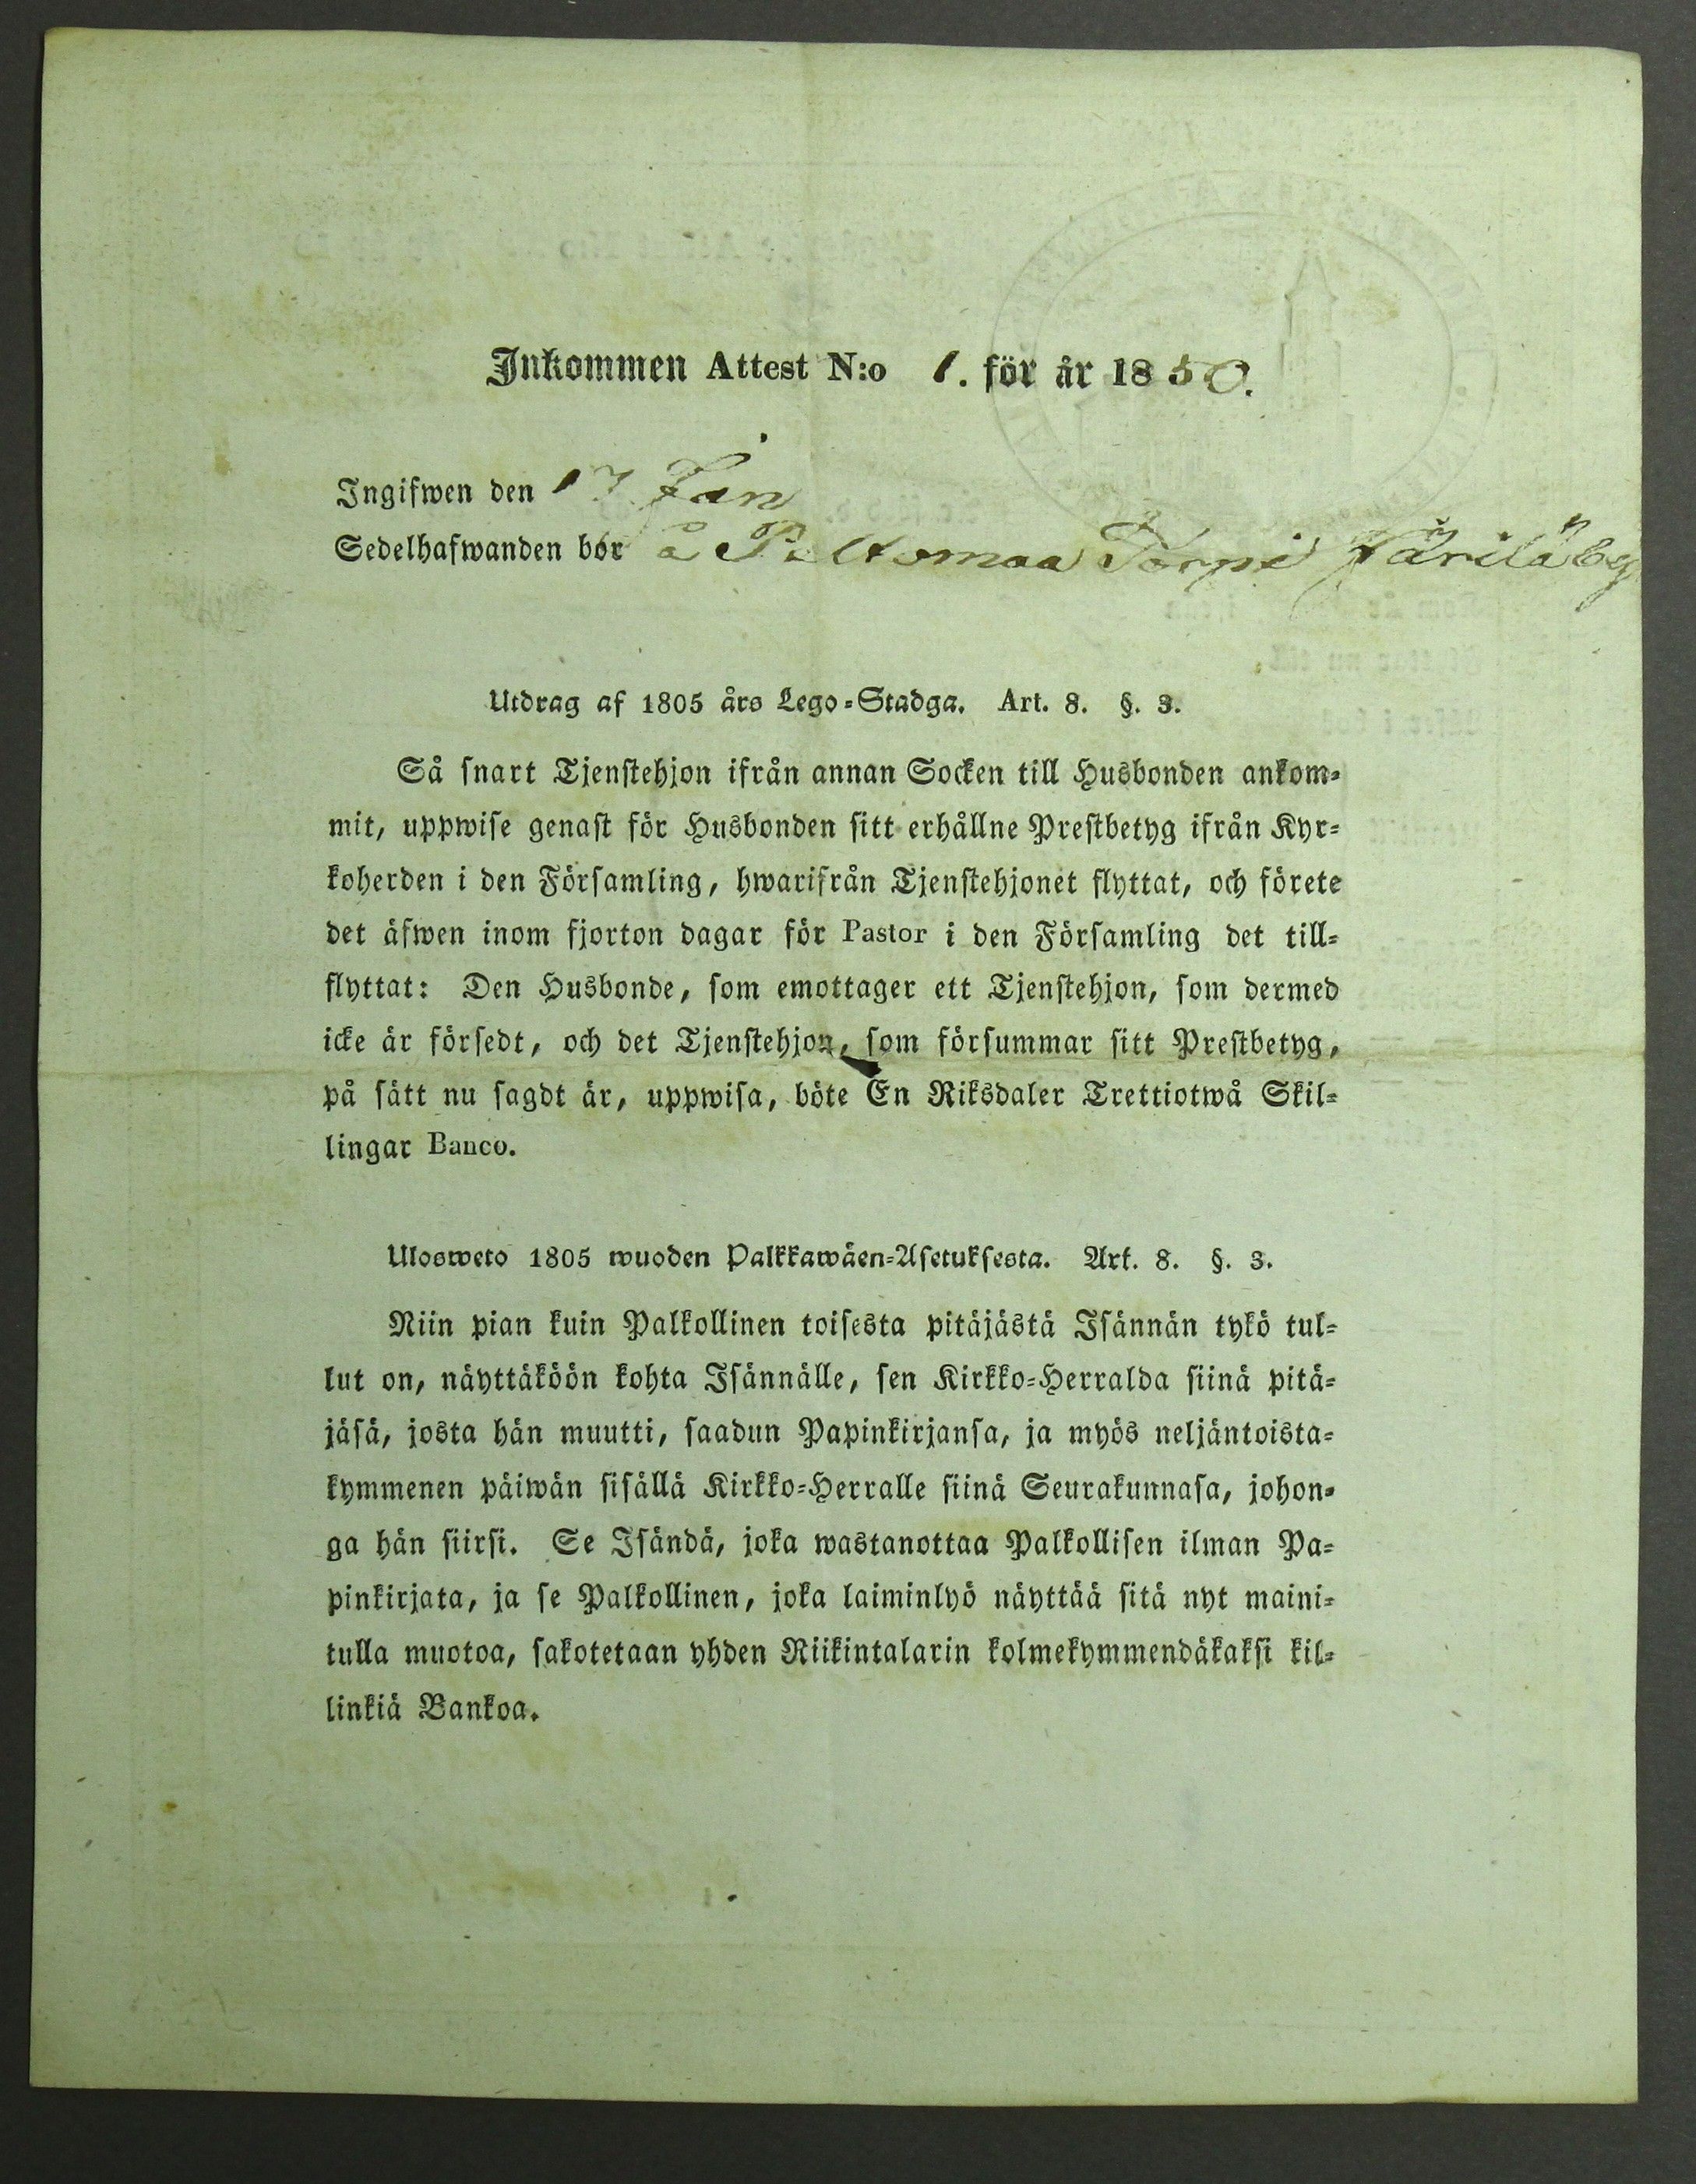 Inkommen Attest N:o 1. för år 1850.
Ingifwen den 17 Jan
Sedelhafwanden bor å Peltomaa Torpi Järilä by
Utdrag af 1805 års Lego-Stadga. Art. 8. §. 3.
Så snart Tjenstehjon ifrån annan Socken till Husbonden ankom-
mit, uppwise genast för Husbonden sitt erhållne Prestbetyg ifrån Kyr-
koherden i den Församling, hwarifrån Tjenstehjonet flyttat, och förete
det äfwen inom fjorton dagar för Pastor i den Församling det till-
flyttat: Den Husbonde, som emottager ett Tjenstehjon, som dermed
icke är försedt, och det Tjenstehjon, som försummar sitt Prestbetyg,
på sätt nu sagdt är, uppwisa, böte En Riksdaler Trettiotwå Skil-
lingar Banco.
Ulosweto 1805 wuoden Palkkawäen-Asetuksesta. Art. 8. §. 3.
Niin pian kuin Palkollinen toisesta pitäjästä Isännän tykö tul-
lut on, näyttäköön kohta Isännälle, sen Kirkko-Herralda siinä pitä-
jäsä, josta hän muutti, saadun Papinkirjansa, ja myös neljäntoista-
kymmenen päiwän sisällä Kirkko-Herralle siinä Seurakunnasa, johon-
ga hän siirsi. Se Isändä, joka wastanottaa Palkollisen ilman Pa-
pinkirjata, ja se Palkollinen, joka laiminlyö näyttää sitä nyt maini-
tulla muotoa, sakotetaan yhden Riikintalarin kolmekymmendäkaksi kil-
linkiä Bankoa.